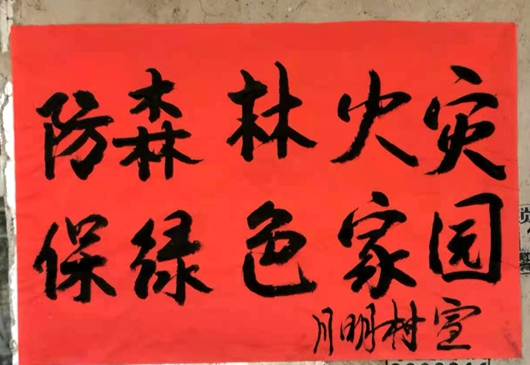 防森林火灾
保绿色家园
月明村宣